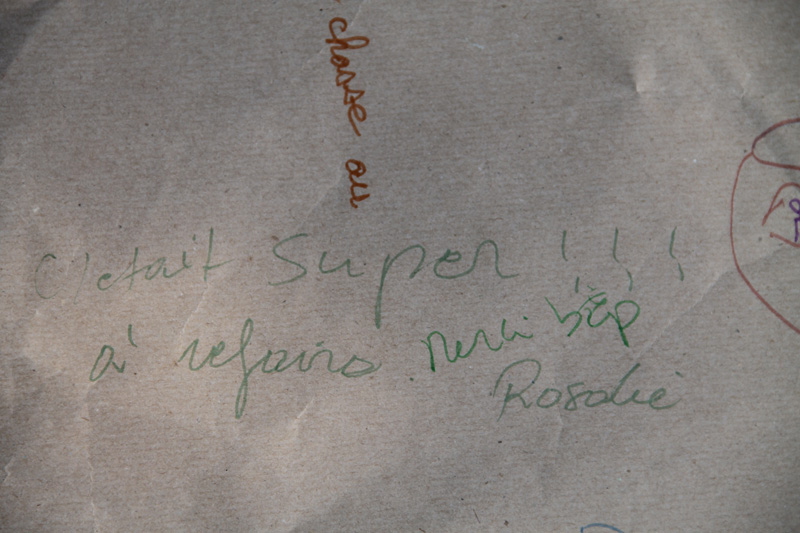 chasse au
C'etait super !!!
à refaire merci
Rosalie